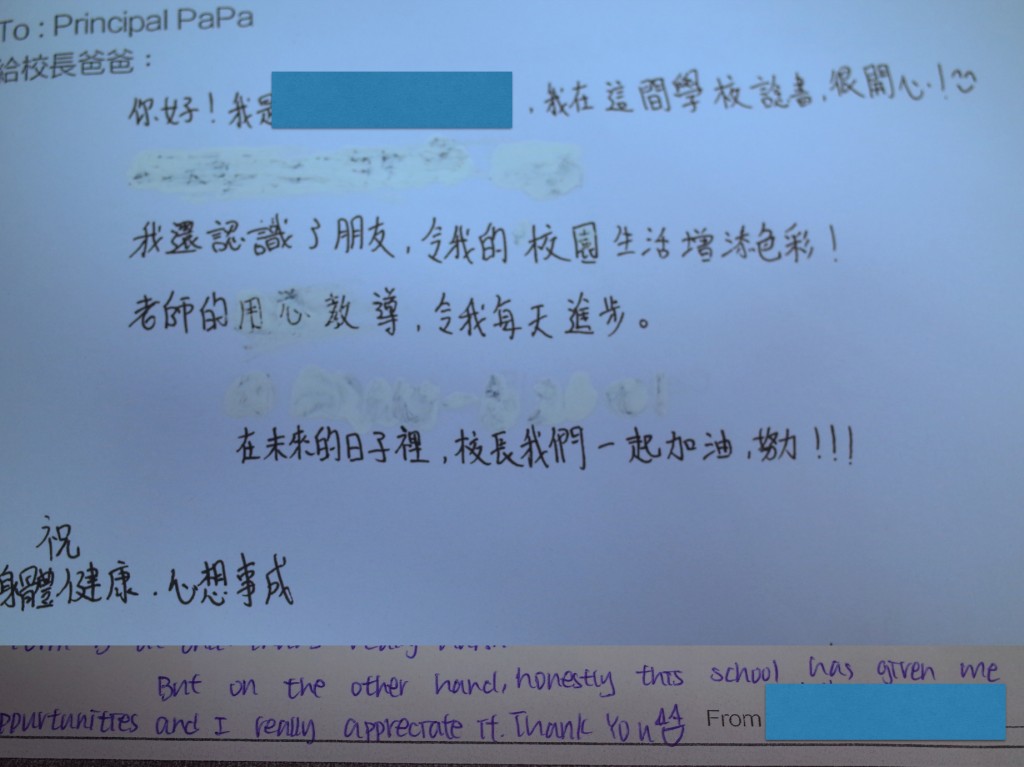 To : Principal PaPa
給校長爸爸：
你好！我是 ，我在這間學校讀書，很開心！
我還認識了朋友，令我的校園生活增添色彩！
老師的用心教導，令我每天進步。
在未來的日子裡，校長我們一起加油，努力！！！
祝
身體健康．心想事成
But on the other hand, honestly this school has given me
ppurtunities and I really appreciate it. Thank You
From